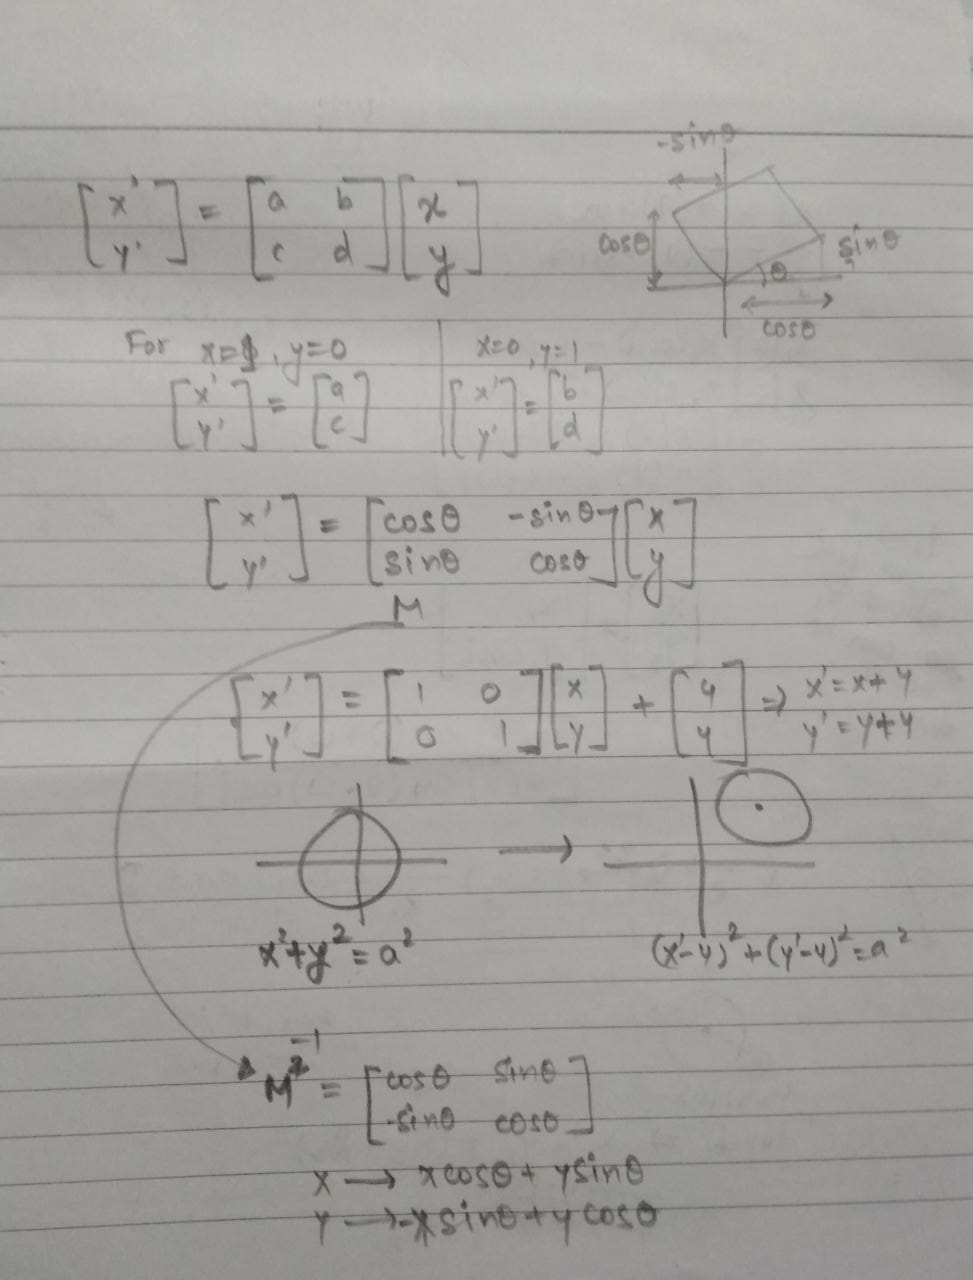 [x' y'] = [a b c d] [x y]
-sinθ
cosθ
sinθ
θ
cosθ
For x=1, y=0
x=0, y=1
[x' y'] = [a c]
[x' y'] = [b d]
[x' y'] = [cosθ -sinθ sinθ cosθ] [x y]
M
[x' y'] = [1 0 0 1] [x y] + [4 4] ⇒ x' = x+4
y' = y+4
x²+y² = a²
(x'-4)²+(y'-4)² = a²
M⁻¹ = [cosθ sinθ -sinθ cosθ]
x → xcosθ + ysinθ
y → -xsinθ + ycosθ